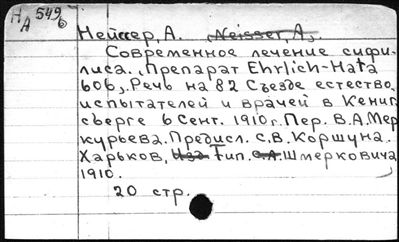 Н/А 549/6
Нейссер, А. Neisser, A.
Современное лечение сифи-
лиса. (Препарат Ehrlich-Hata
606). Речь на 82 Съезде естество-
испытателей и врачей в Кениг-
сберге 6 Сент. 1910 г. Пер. В.А. Мер-
курьева. Предисл. С.В. Коршуна.
Харьков, Изд. Тип. С.А. Шмерковича
1910.
20 стр.